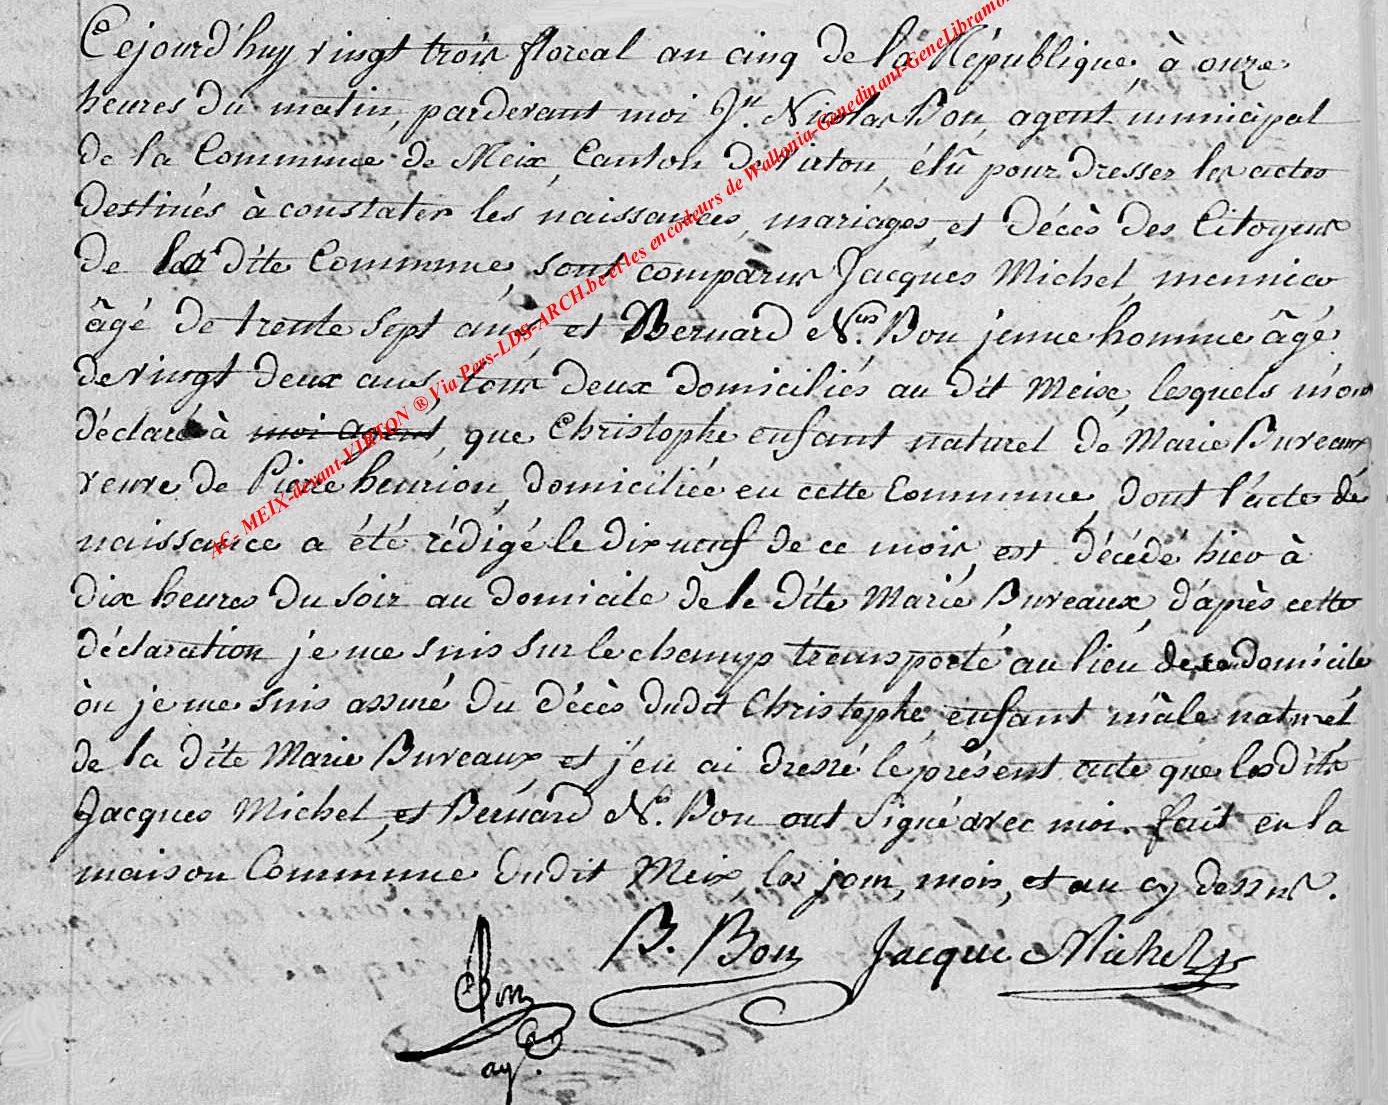 Cejourd'huy vingt trois floreal an cinq de la République, à onze
heures du matin, pardevant moi Jn. Nicolas Bon, agent municipal
de la Commune de Meix, Canton de Virton, élû pour dresser les actes
destinés à constater les naissances, mariages, et décès des Citoyens
de la dite Commune, sont comparus Jacques Michel, meunier
âgé de trente sept ans et Bernard Nas. Bon jeune homme âgé
de vingt deux ans, tous deux domiciliés au dit Meix, lesquels m'ont
déclaré à moi agent, que Christophe enfant naturel de Marie Bureaux
veuve de Pierre henrion, domiciliée en cette Commune, dont l'acte de
naissance a été rédigé le dix neuf de ce mois, est décédé hier à
dix heures du soir au domicile de le dite Marie Bureaux, d'après cette
déclaration je me suis sur le champ transporté au lieu de ce domicile
où je me suis assuré du décès dudit Christophe enfant mâle naturel
de la dite Marie Bureaux, et j'en ai dressé le présent acte que les dits
Jacques Michel, et Bernard Ns. Bon ont signé avec moi. fait en la
maison Commune dudit Meix, les jour, mois, et an cy dessus.
B. Bon Jacque Michel
Bon
ag.
AC- MEIX-devant-VIRTON ® Via Pers-LDS-ARCH.be et les encodeurs de Wallonia-Genedinant-GeneLibramon